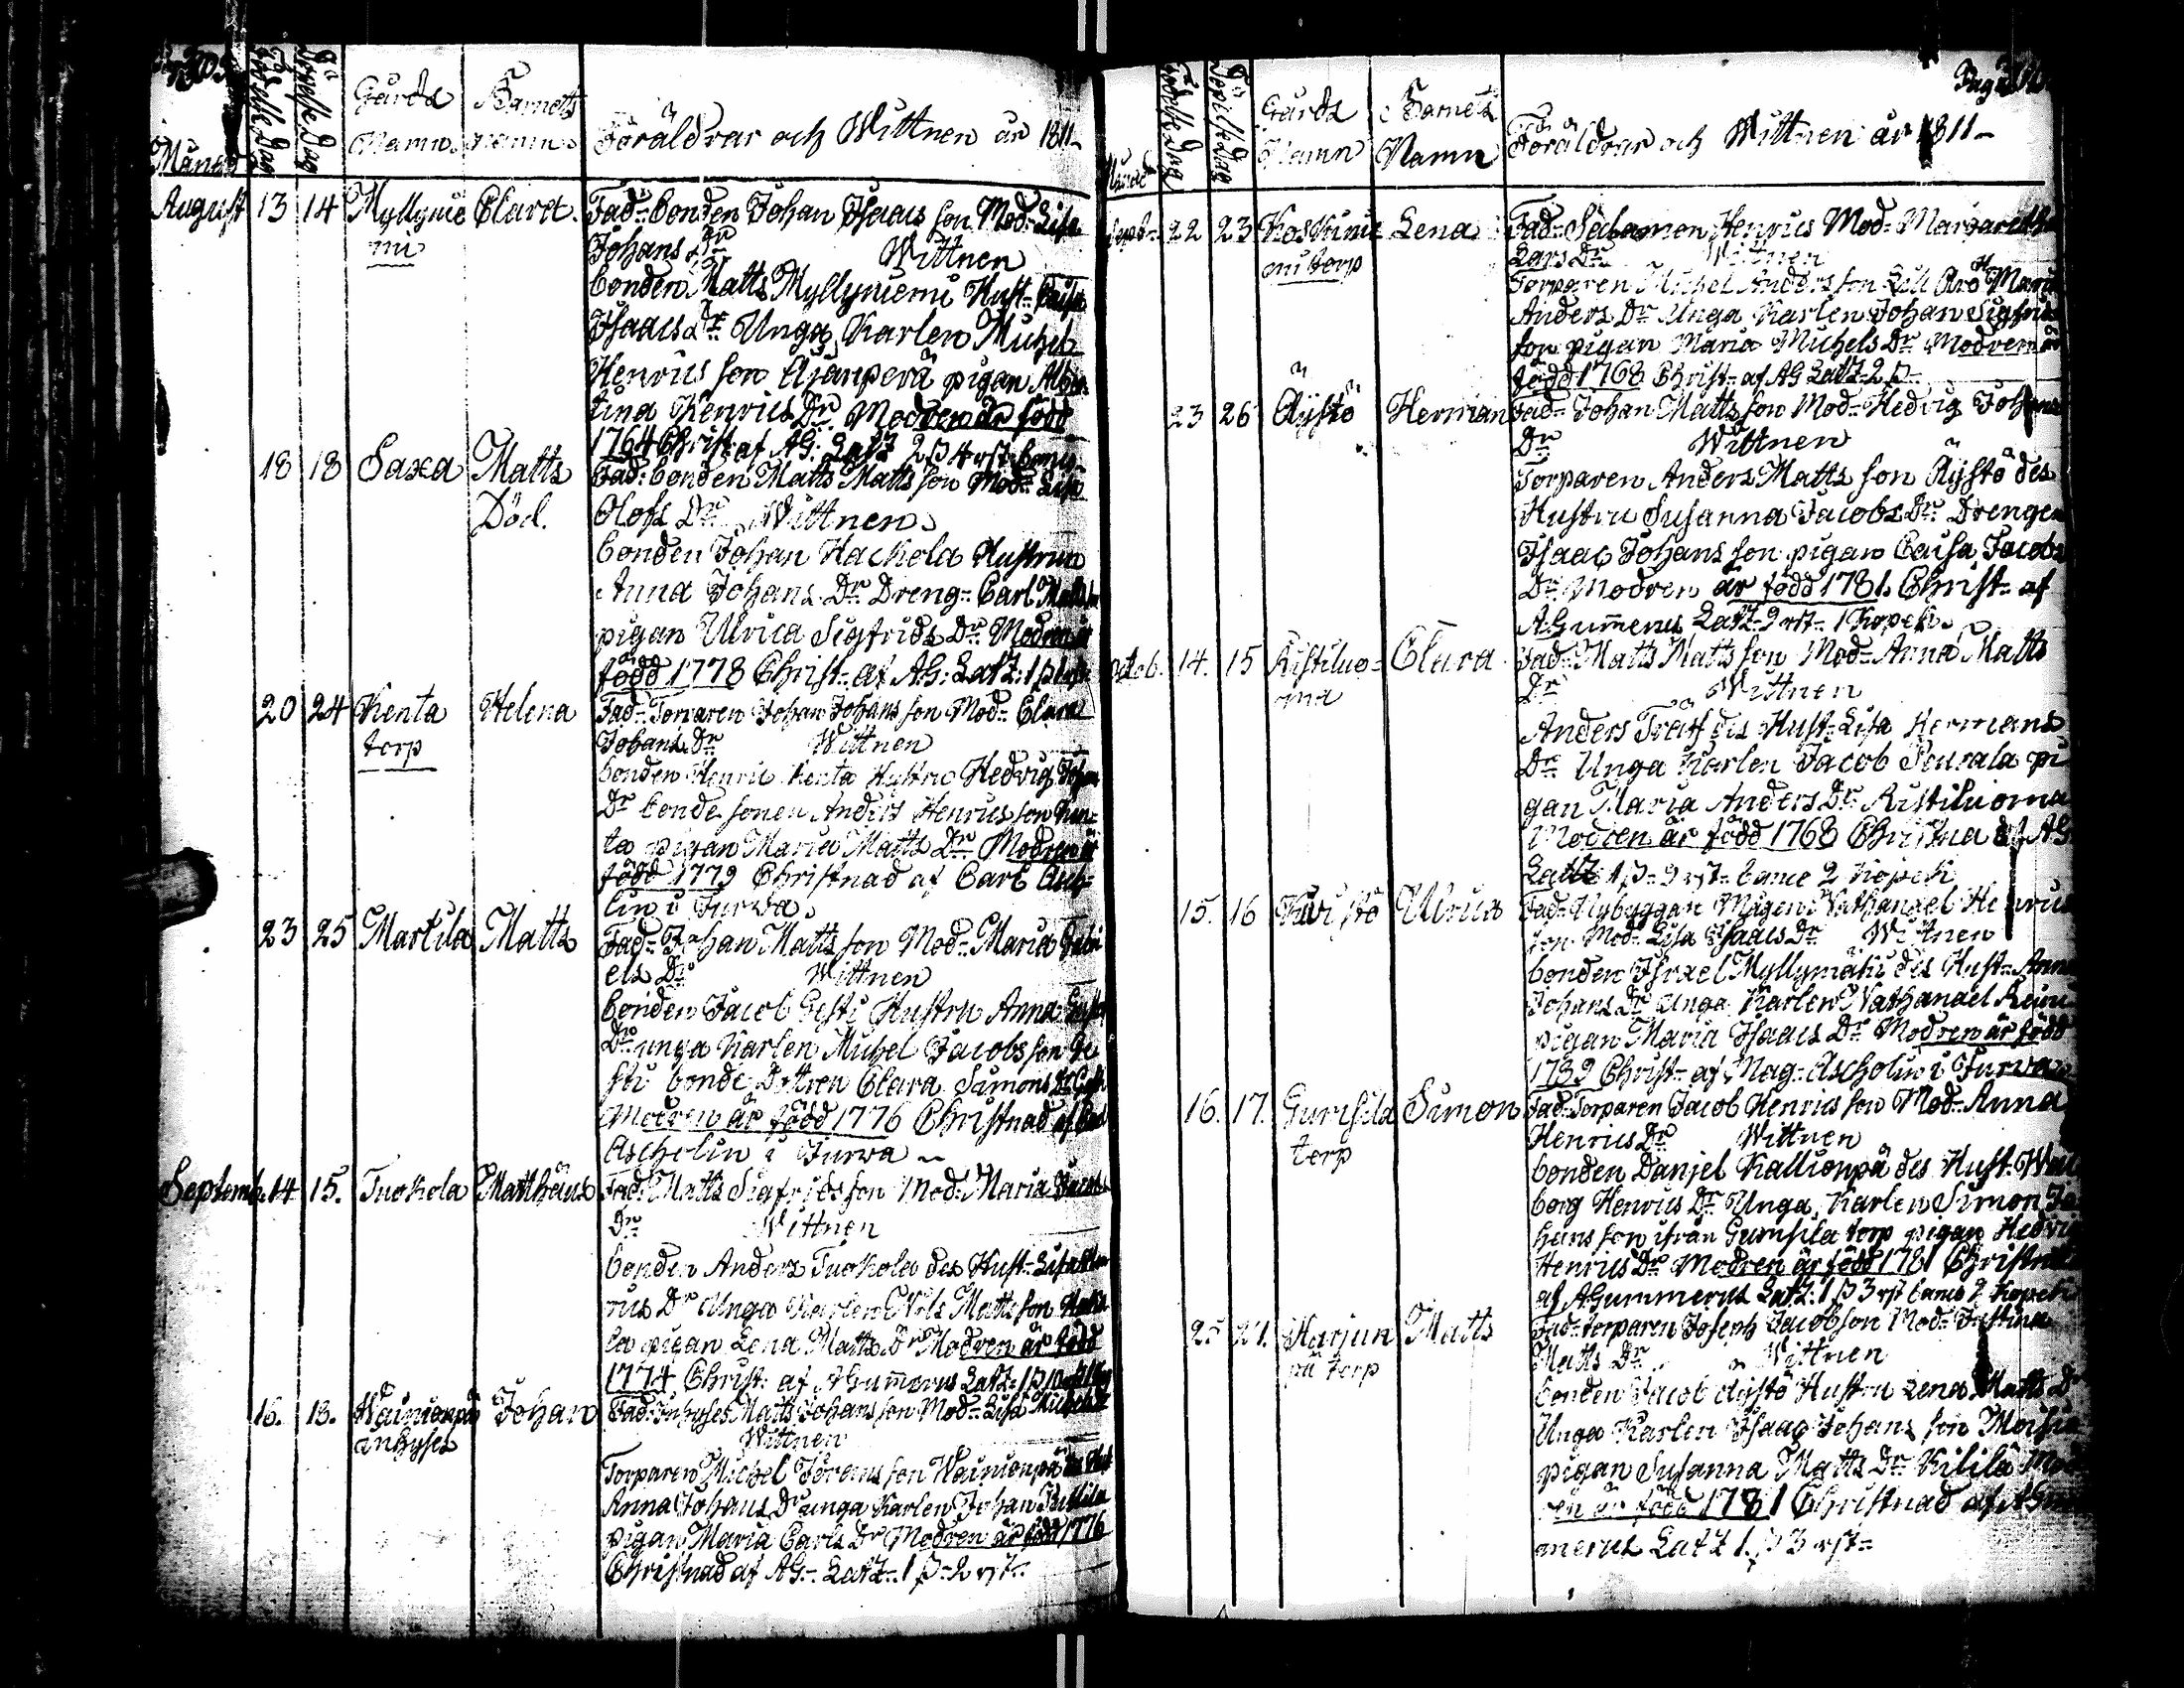 Månad
Födelse Dag
Döpelse Dag
Gårds Namn
Barnets namn
Föräldrar och Wittnen år 1811
August 13 14 Myllynie Clara Fad. bonden Johan Isaacs son Mod. Lisa
mi Johans Dr Wittnen
bonden Matts Myllyniemi Hust. Caisa
Isaacs Dr Unga Karlen Michel
Henrics son pigan
tina Henrics Dr Modren är född
1764 Christ. af AG. Latz 2 β 4 rst
18 18 Saxa Matts Fad. bonden Matts Matts son Mod. Lisa
Död. Olofs Dr Wittnen
bonden Johan Hackola Hustrun
Anna Johans Dr Dreng. Carl Matts
pigan Ulrica Sigfrids Dr Modren är
född 1778 Christ. af AG. Latz. 1 β
20 24 Kenta Helena Fad. Torparen Johan Johans son Mod. Clara
torp Johans Dr Wittnen
bonden Henric Kenta Hustru Hedvig Johan
Dr bonde sonen Anders Henrics son Ken
ta pigan Maria Matts Dr Modren är
född 1779 Christnad af Carl Asch
lin i Jurva
23 25 Markila Matts Fad. Johan Matts son Mod. Maria Gabri
els Dr Wittnen
bonden Jacob Gesti Hustru Anna
Dr unga Karlen Michel Jacobs son Ge
sti bonde Dottren Clara Simons Dr
Modren är född 1776 Christnad af
Ascholin i Jurva
Septemb. 14 15. Tuokola Mathäus Fad. Matts Sigfrids son Mod. Maria Jacobs
Dr Wittnen
bonden Anders Tuokola des Hust. Lisa Hen
rics Dr Unga Karlen Nils Matts son
la pigan Lena Matts Dr Modren är född
1774 Christ. af AGummerus Latz. 1 β
16. 18. Wainionpä Johan Fad. Inhyses Matts Johans son Mod. Lisa Michels Dr
inhyses Wittnen
Torparen Michel Görans son Wainionpä des Hust
Anna Johans Dr unga Karlen Johan
pigan Maria Carls Dr Modren är född 1776
Christnad af AG. Latz. 1 β 2 rst.
Pag
Månad
Födelse Dag
Döpelse Dag
Gårds Namn
Barnets Namn
Föräldrar och Wittnen år 1811
Sept. 22 23 Koskinie Lena Fad. Salamon Henrics Mod. Margaretha
mi torp Lars Dr Wittnen
Torparen Michel Anders son Maria
Anders Dr Unga Karlen Johan Sigfrids
son pigan Maria Michels Dr Modren är
född 1768 Christ. af AG Latz. 2 β
23 26 Äÿstö Herman Fad. Johan Matts son Mod. Hedvig Johans
Dr Wittnen
Torparen Anders Matts son Äÿstö des
Hustru Susanna Jacobs Dr Drengen
Isaac Johans son pigan Caisa Jacobs
Dr Modren är född 1781. Christ. af
AGummerus Latz. 9 rst. 1 Kopek
Octob. 14. 15 Ristiluo Clara Fad. Matts Matts son Mod. Anna Matts
ma Dr Wittnen
Anders Träsk des Hust. Lisa Hermans
Dr Unga Karlen Jacob Pi
gan Maria Anders Dr Ristiluoma
Modren är född 1768 Christna af AG
Latz 1 β 9 rst. banco 2 Kopek
15. 16 Kivistö Ulrica Fad. Nybyggare Mågen Nathanael Henrics
son Mod. Lisa Isaacs Dr Wittnen
bonden Israel Myllymäki des Hust. Anna
Johans Dr Unga Karlen Nathanael
pigan Maria Isaacs Dr Modren är född
1789 Christ. af Mag. Ascholin i Jurva
16. 17. Gumsila Simon Fad. Torparen Jacob Henrics son Mod. Anna
torp Henrics Dr Wittnen
bonden Danjel Kallionpä des Hust. Wal
borg Henrics Dr Unga Karlen Simon Jo
hans son ifrån Gumsila torp pigan Hedvig
Henrics Dr Modren är född 1781 Christnad
af AGummerus Latz. 1 β 3 rst banco 2 Kopek
25 27. Harjun Matts Fad. torparen Joseph Jacobson Mod. Justina
pä torp Matts Dr Wittnen
bonden Jacob Äÿstö Hustru Lena Matts Dr
Unga Karlen Isaac Johans son
pigan Susanna Matts Dr Kilila Mod
ren är född 1781 Christnad af AGum
merus Latz 1 β 3 rst.